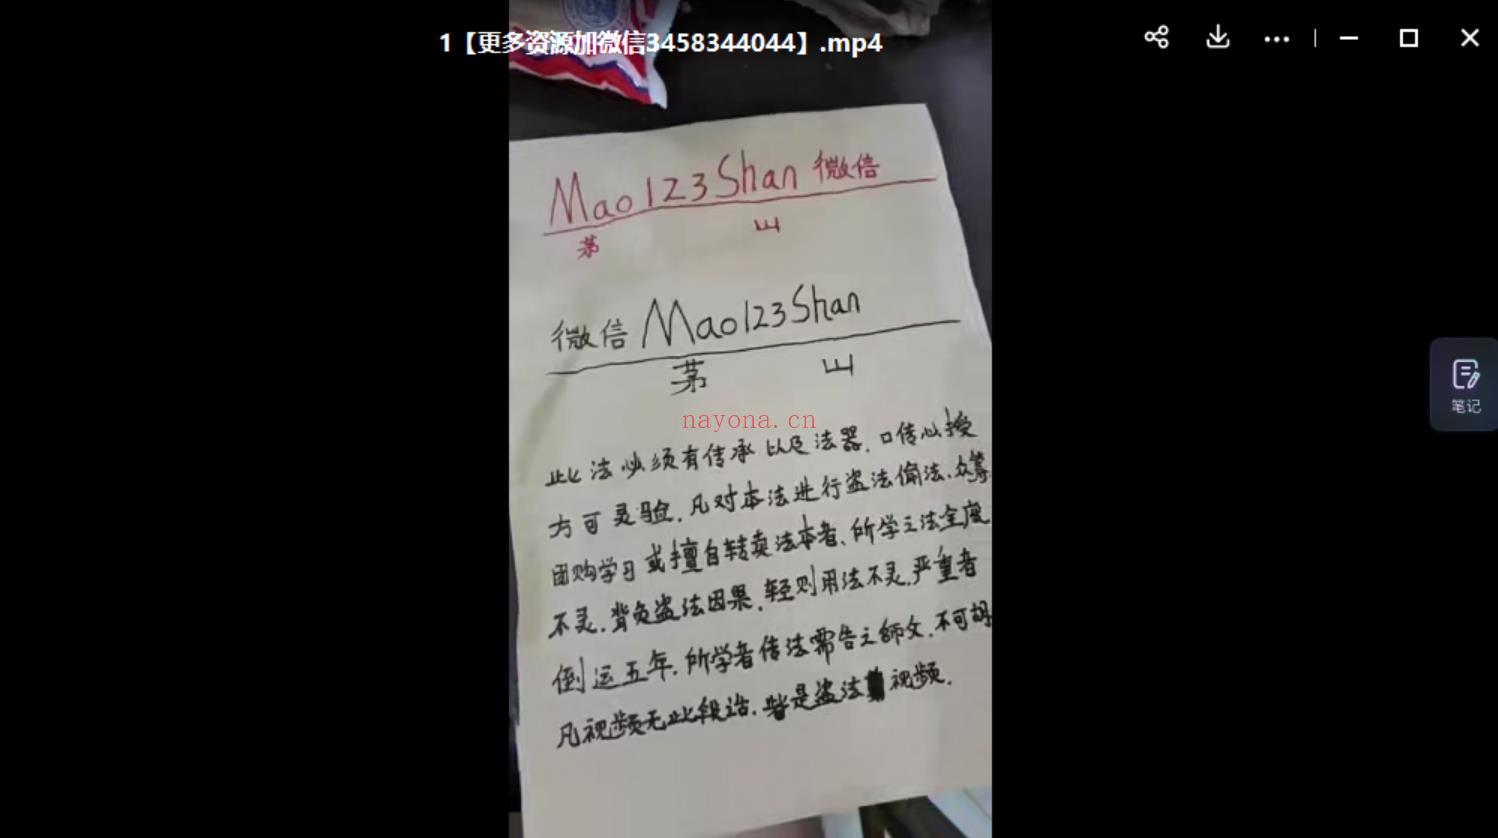 1【更多资源加微信3458344044】.mp4
Mao123Shan 微信
茅 山
微信 Mao123Shan
茅 山
nayona.cn
此法必须有传承以及法器,口传心授
方可灵验,凡对本法进行盗法偷法,众筹
团购学习或擅自转卖法本者,所学之法全废
不灵,背负盗法因果,轻则用法不灵,严重者
倒运五年,所学者传法需告之师父,不可胡
凡视频无此段话,皆是盗法视频.
笔记